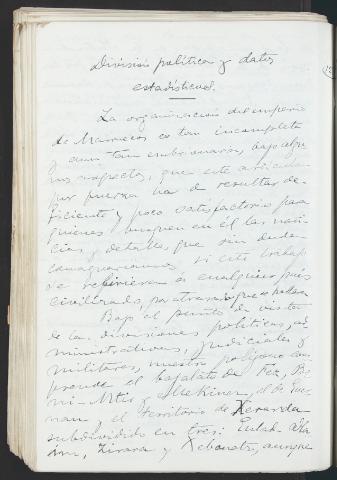 División política y datos
estadísticos.
La organización del imperio
de Marruecos es tan incompleta
y aun tan embrionaria, bajo algu-
nos aspectos, que este artículo
por fuerza ha de resultar de-
ficiente y poco satisfactorio para
quienes busquen en él las noti-
cias y detalles que sin duda
si este trabajo
se refiriera á cualquier país
civilizado, por atrasado que
Bajo el punto de vista
de las divisiones políticas, ad-
ministrativas, judiciales y
militares, nuestro polígono com-
prende el bajalato de Fez, Be-
ni-Mtir y Mekínez, el de Guer-
uan y el territorio de Xerarda
subdividido en tres: Eulad
Zirara y Xebanat, aunque